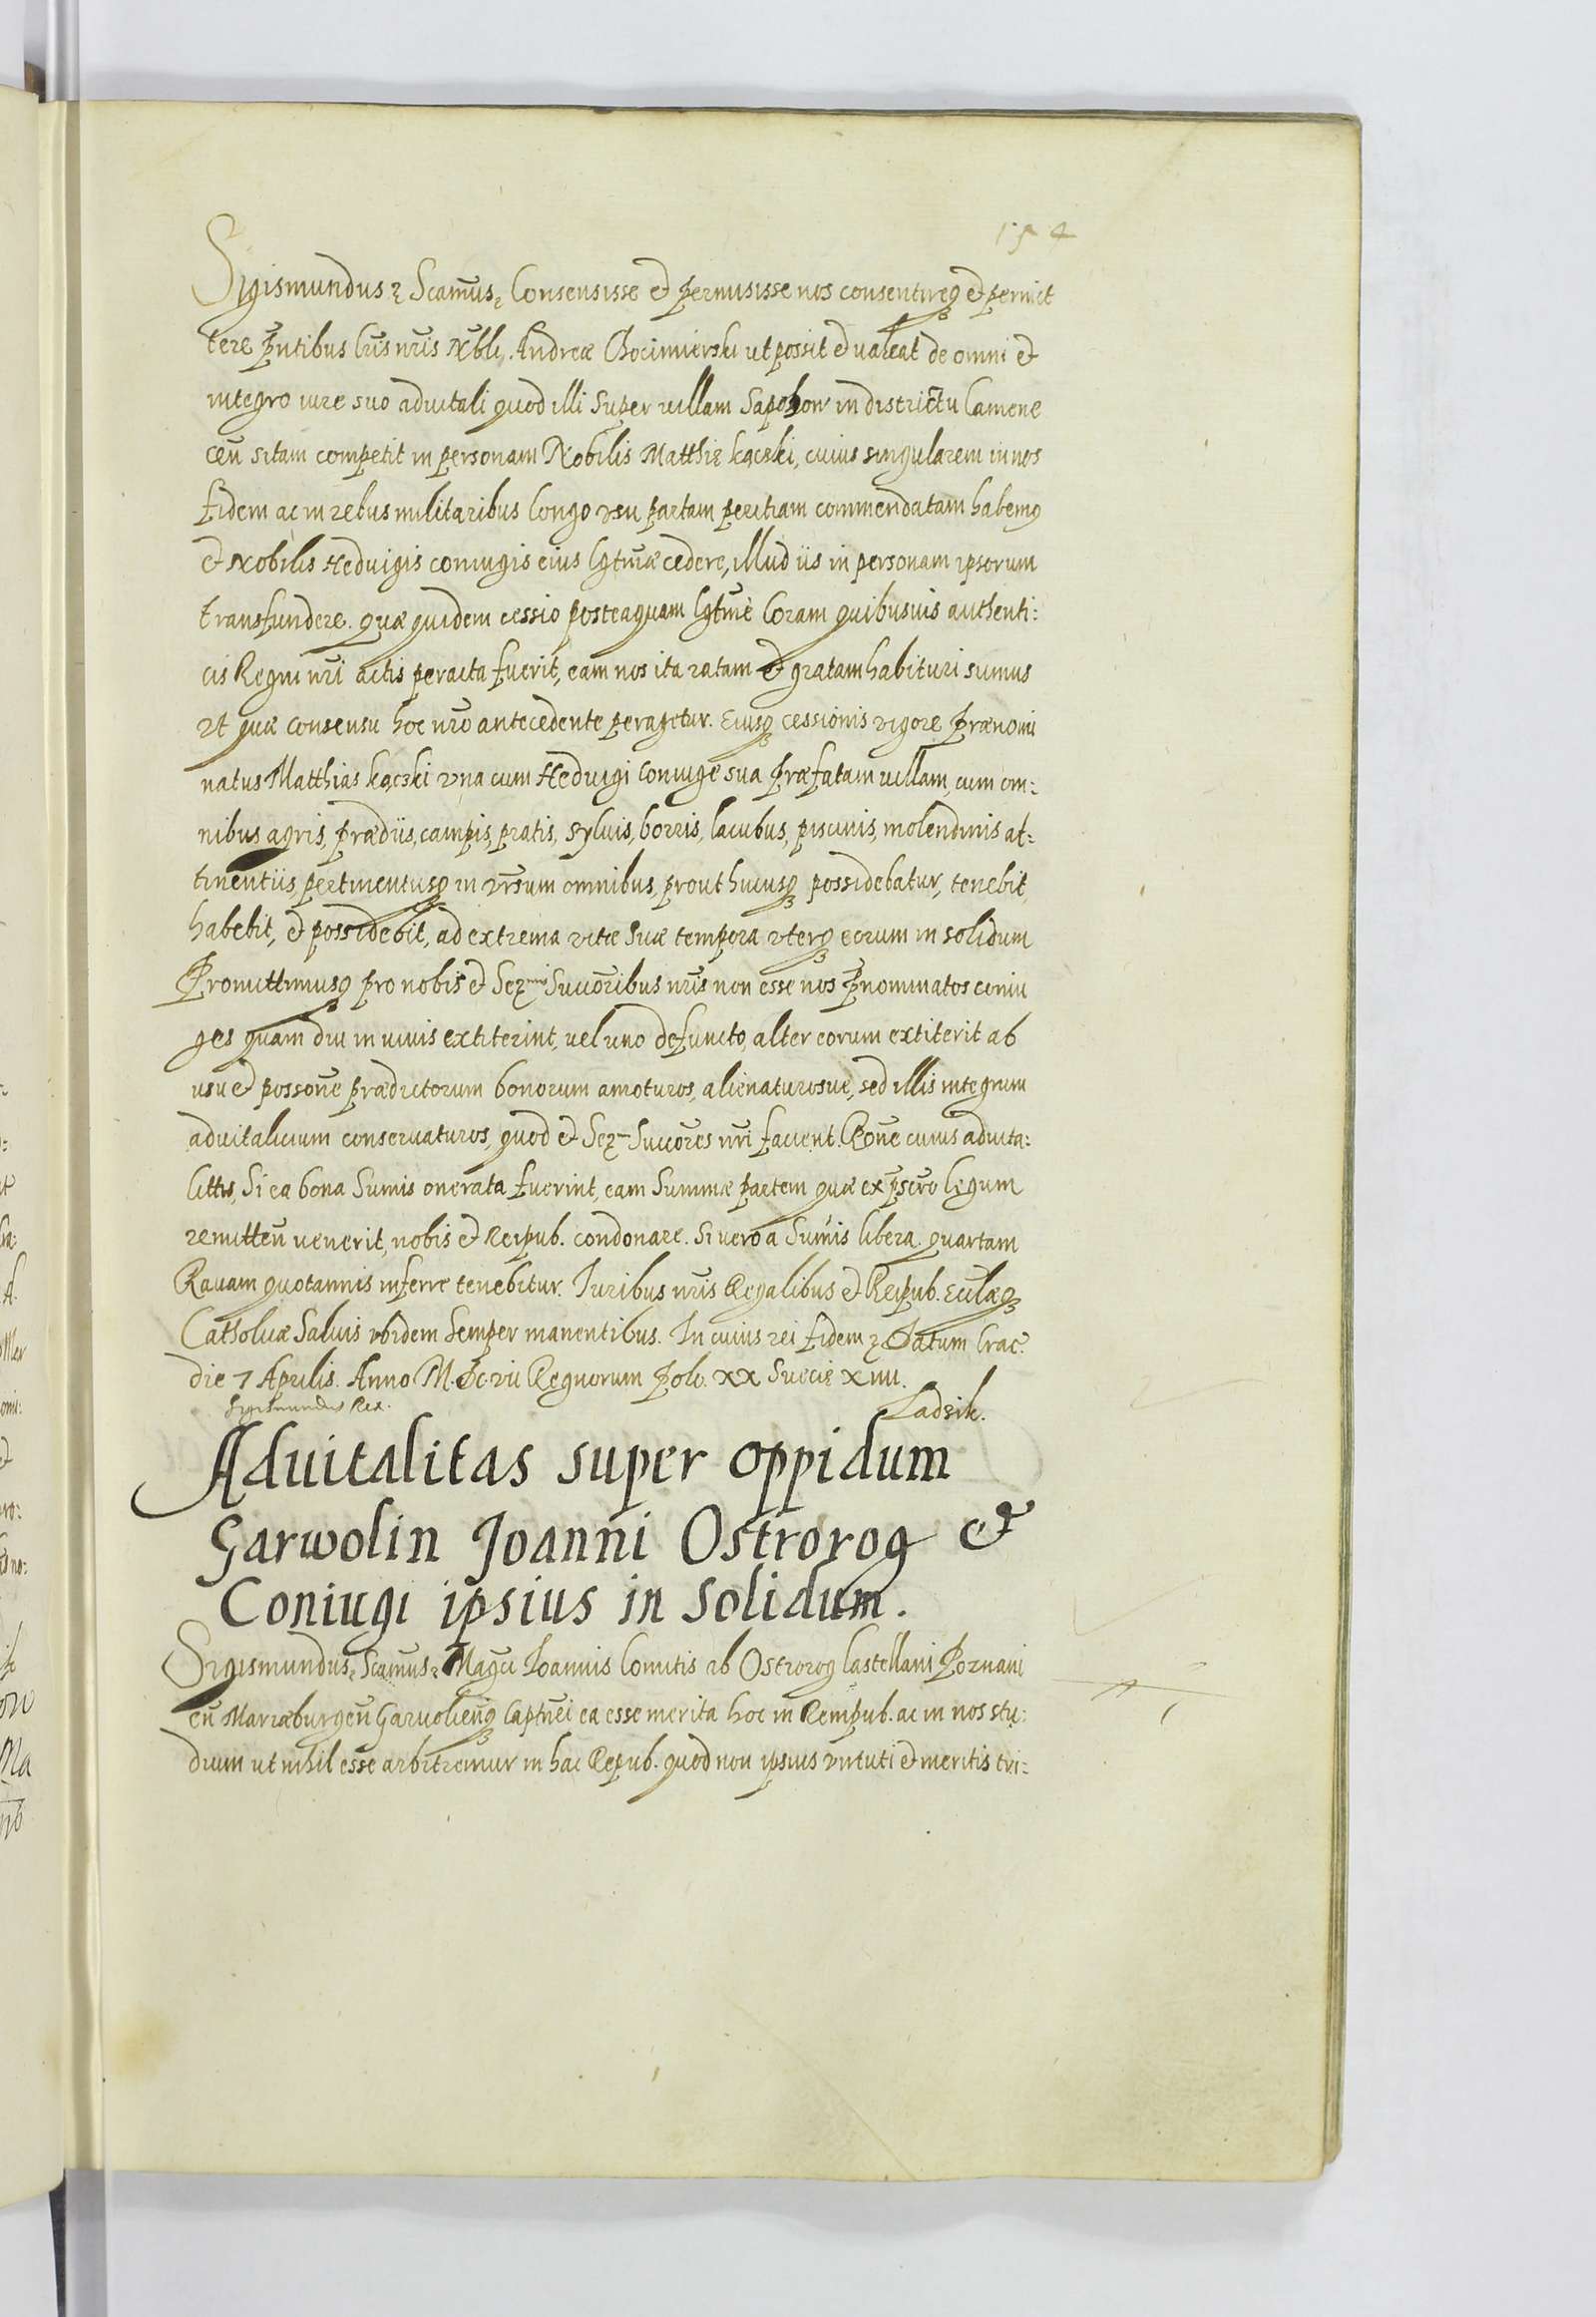 154
Sigismundus ꝛ Scamus ꝛ Consensisse et permisisse nos consentireq et permit
tere pntibus lris nris Nbli. Andreæ Chocimierski ut possit et valeat de omni et
integro iure suo aduitali quod illi super villam Sapohow in districtu Camene
cen̄ sitam competit in personam Nobilis Matthię Kącski, cuius singularem in nos
fidem ac in rebus militaribus longo vsu partam peritiam commendatam habemq
et Nobilis Heduigis coniugis eius lgtmæ cedere, illud iis in personam ipsorum
transfundere. quæ quidem cessio posteaquam lgtmè Coram quibusuis authenti:
cis Regni nri actis peracta fuerit, eam nos ita ratam et gratam habituri sumus
vt quæ consensu hoc nro antecedente peragetur. Eiusq cessionis vigore prænomi
natus Matthias Kącski vna cum Heduigi coniuge sua præfatam villam, cum om:
nibus agris, prædiis, campis, pratis, syluis, borris, lacubus, piscinis, molendinis at:
tinentiis, pertinentiisq in vrsum omnibus, prout hucusq possidebatur, tenebit,
habebit, et possidebit, ad extrema vitæ suæ tempora vterq eorum in solidum
Promittimusq pro nobis et Serᵐⁱˢ Succoribus nris non esse nos pnominatos coniu
ges quam diu in viuis extiterint, vel uno defuncto, alter eorum extiterit ab
usu et possone prædictorum bonorum amoturos, alienaturosue, sed illis integrum
aduitalicium conseruaturos, quod et Ser Succores nri facient. Rone cuius aduita:
litts, Si ea bona Sumis onerata fuerint, eam summæ partem quæ ex pscro legum
remitten̄ venerit, nobis et Reipub. condonare. Si vero a Sumis libera quartam
Rauam quotannis inferre tenebitur. Iuribus nris Regalibus et Reipub. Ecclæq
Catholicæ Saluis ibidem semper manentibus. In cuius rei fidem ꝛ Datum Crac.
die 7 Aprilis. Anno M.DC.vii Regnorum Polo. XX Suecię XIIII.
Sigismundus Rex. Ladzik.
Aduitalitas super oppidum
Garwolin Joanni Ostrorog et
Coniugi ipsius in solidum.
Sigismundus ꝛ Scamus ꝛ Magci Joannis Comitis ab Ostrorog Castellani Poznani
en̄ Mariæburgen̄ Garuolien̄q Captnei ea esse merita hoc in Rempub. ac in nos stu:
dium ut nihil esse arbitremur in hac Repub. quod non ipsius virtuti et meritis tri: